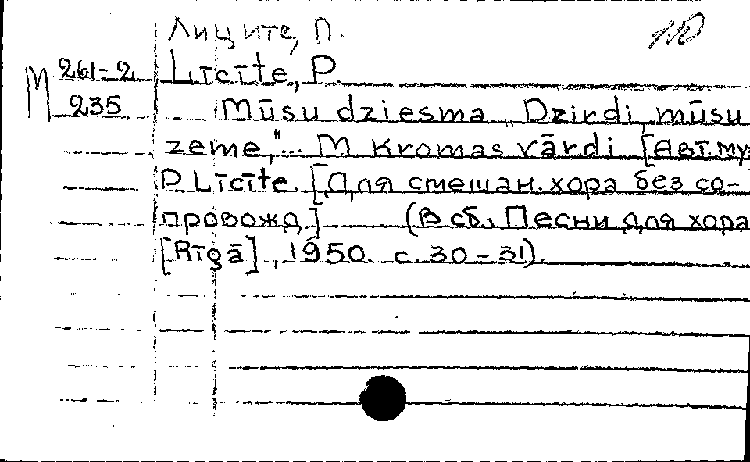 Лиците, П.
М 261-2 Līcīte, P.
235 Mūsu dziesma „Dzirdi, mūsu
zeme,"... M Kromas vārdi [Авт. му
P. Līcīte. [Для смешан. хора без со-
провожд.] (В сб. Песни для хора
[Rīgā], 1950. с. 30-31).